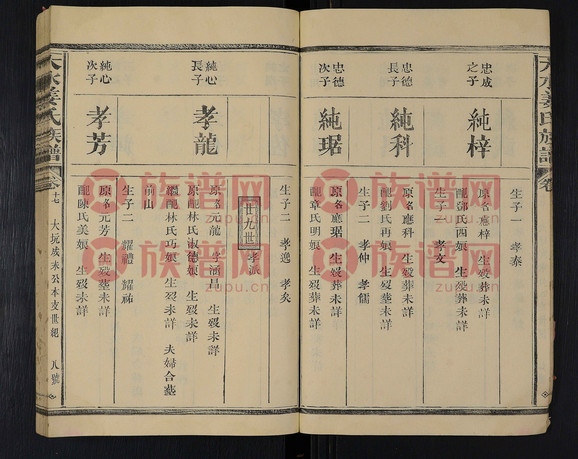 天水姜氏族譜
卷
生子一 孝泰
忠成之子
純梓
原名應梓 生歿葬未詳
配鄧氏西娘 生歿葬未詳
生子一 孝文
忠德長子
純科
原名應科 生歿葬未詳
配劉氏再娘 生歿葬未詳
生子二 孝仲 孝儒
忠德次子
純琚
原名應琚 生歿葬未詳
配章氏明娘 生歿葬未詳
生子二 孝逸 孝炙
廿九世 孝派
純心長子
孝龍
原名元龍 字涵昌 生歿未詳
原配林氏淑德娘 生歿未詳
繼配林氏巧娘 生歿未詳 夫婦合墓
前山
生子二 耀禮 耀祐
純心次子
孝芳
原名元芳 生歿墓未詳
配陳氏美娘 生歿未詳
天水姜氏族譜
卷之七
大坑成未公本支世紀
八號
族谱网
zupu.cn